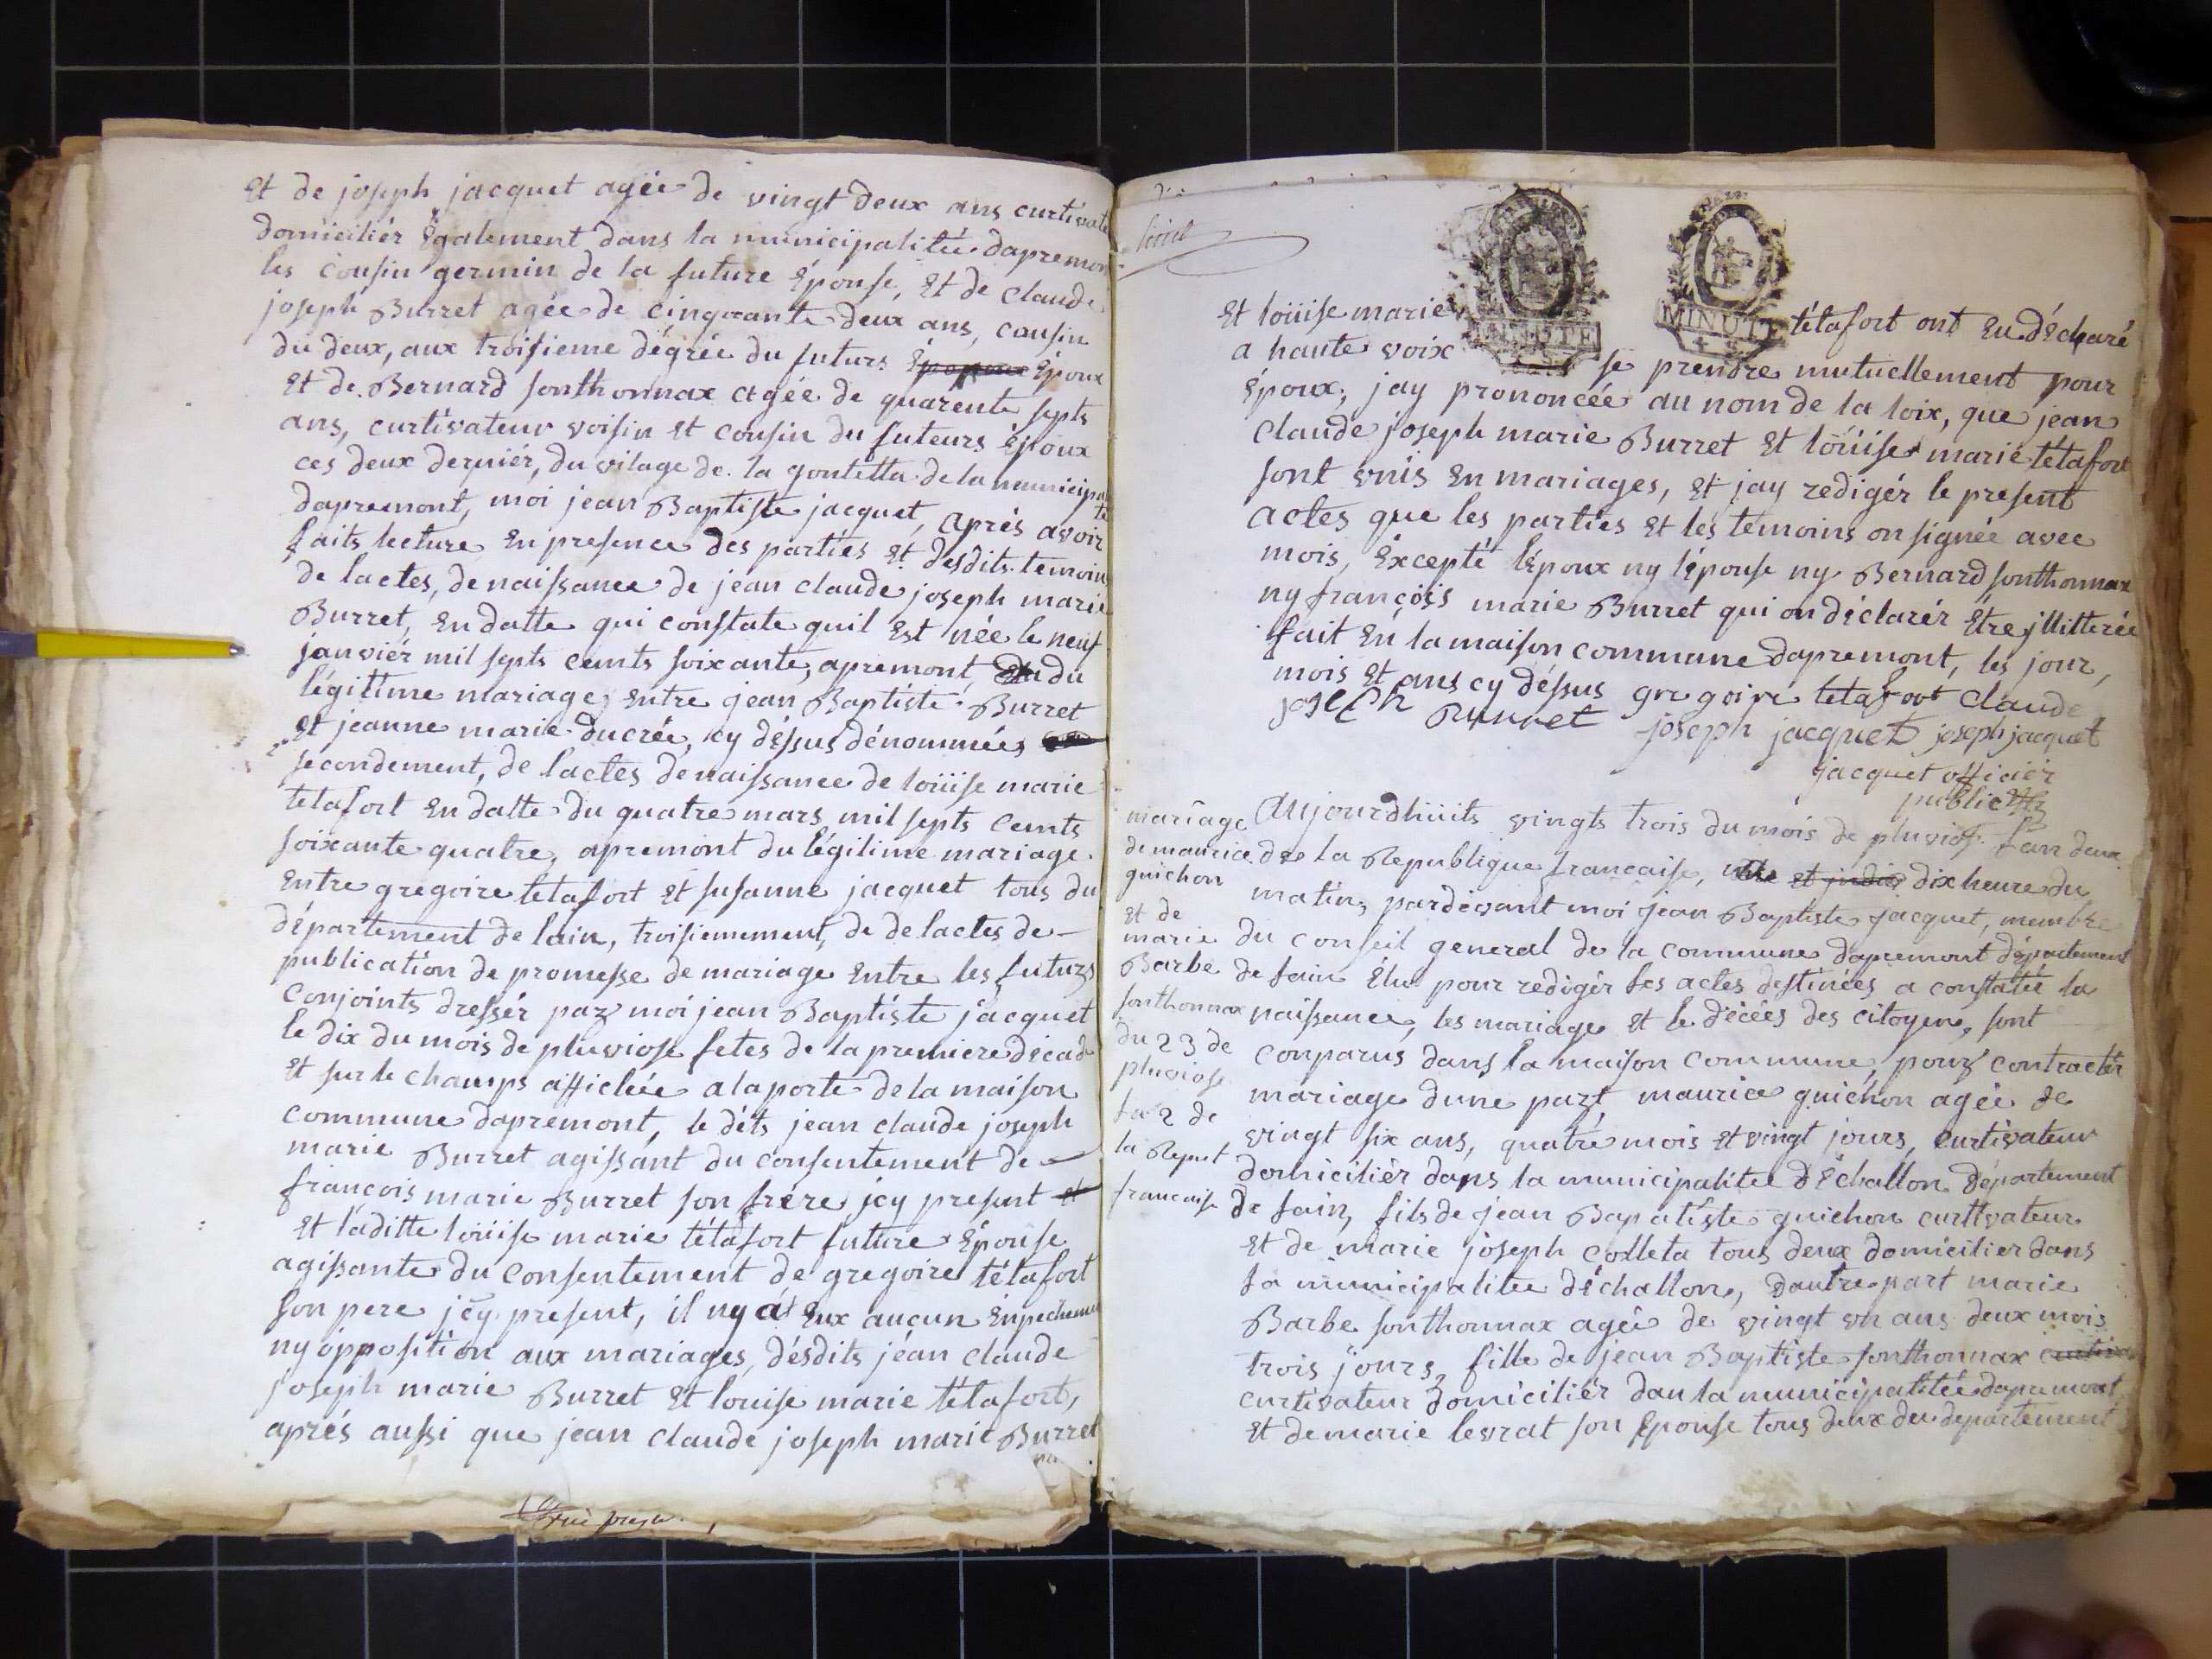 Et de joseph jacquet agée de vingt deux ans curtivate
domiciliér Également dans la municipalitée dapremon
les cousin germin de la future Épouse, Et de Claude
joseph Burret agée de cinqante deux ans, cousin
du deux, aux troisieme dégrée du futurs Époux
Et de Bernard sonthonnax agée de quarente septs
ans, curtivateur voisin Et cousin du futeurs Époux
ces deux derniér, du vilage de la gontetta de la municipalite
dapremont, moi jean Baptiste jacquet, après avoir
faits lecture En presence des parties Et desdits temoin
de lactes, de naissance de jean claude joseph marie
Burret, En datte qui constate quil Est née le neuf
janviér mil septs cents soixante, apremont, du
légitime mariage, Entre jean Baptiste Burret
Et jeanne marie ducrée, cy déssus dénommées
secondement, de lactes de naissance de loüise marie
tetafort En datte du quatre mars mil septs cents
soixante quatre, apremont du légitime mariage
Entre gregoire tetafort Et susanne jacquet tous du
département de lain, troisiemement, de de lactes de
publication de promesse de mariage Entre les futurs
Conjoints dressér par moi jean Baptiste jacquet
le dix du mois de pluviose fetes de la premiere décade
Et sur le champs affichée a la porte de la maison
commune dapremont, le dits jean claude joseph
marie Burret agissant du consentement de
françois marie Burret son frére jcy present et
Et laditte loüise marie tétafort future Épouse
agissante du Consentement de gregoire tétafort
son pere jcy present, il ny a Eux aucun Enpechemen
ny opposition aux mariages, désdits jéan claude
joseph marie Burret Et loüise marie tétafort,
aprés aussi que jean claude joseph marie Burret
Et loüise marie tétafort ont Eu déclaré
MINUTE MINUTE
a haute voix se prendre mutuellement pour
Époux, jay prononcée au nom de la loix, que jean
Claude joseph marie Burret Et loüise marie tétafort
sont vnis En mariages, Et jay redigér le present
actes que les parties Et les temoins on signée avec
mois, Excepté lépoux ny lépouse ny Bernard sonthonnax
ny françois marie Burret qui on déclarér Être jllitterée
fait En la maison commune dapremont, les jour,
mois Et ans cy déssus gregoire tetafort Claude
joseph Burret joseph jacquet joseph jacquet
jacquet officiér
public
mariage
de maurice
guichon
et de
marie
Barbe
sonthonnax
du 23 de
pluviose
la 2 de
la Reput
francaise
Aujourdhüits vingts trois du mois de pluviose lan deux
de la Republique francaise, dix heure du
matin, pardevant moi jean Baptiste jacquet, membre
du Conseil general de la commune dapremont département
de lain Élu pour redigér les actes destinées a constatér la
naissance, les mariage Et le décées des citoyens, sont
conparus dans la maison commune, pour contractér
mariage dune part, maurice guichon agée de
vingt six ans, quatre mois Et vingt jours, curtivateur
domiciliér dans la municipalitée dÉchallon Département
de lain, fils de jean Bapatiste guichon curtivateur
Et de marie joseph colleta tous deux domicilier dans
la municipalitee déchallon, dautre part marie
Barbe sonthonnax agée de vingt vn ans deux mois
trois jours, fille de jean Baptiste sonthonnax
curtivateur domiciliér dan la municipalitée dapremont
Et de marie levrat son Epouse tous deux du departement